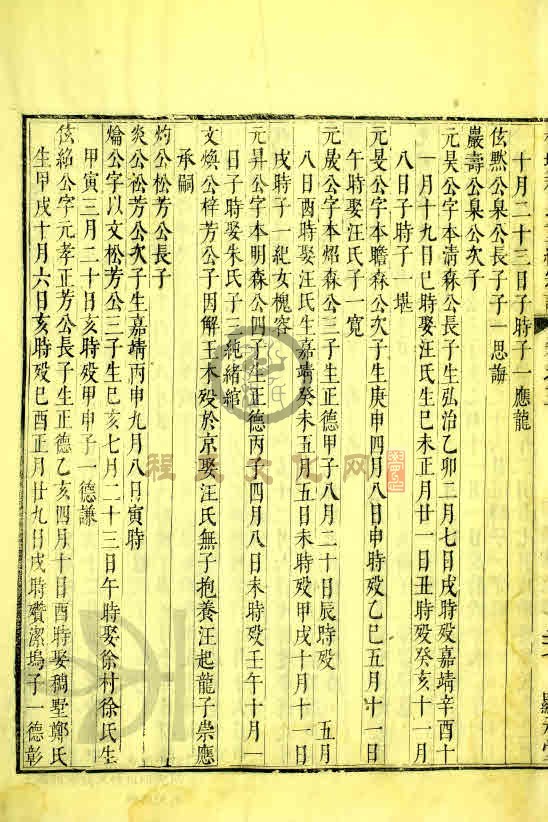 十月二十三日子時子一應龍
伭黙公臬公長子子一思誨
巖壽公臬公次子
元昊公字本淸森公長子生弘治乙卯二月七日戌時殁嘉靖辛酉十
一月十九日巳時娶汪氏生巳未正月廿一日丑時殁癸亥十一月
八日子時子一堪
元旻公字本瞻森公次子生庚申四月八日申時殁乙巳五月十一日
午時娶汪氏子一寬
元晟公字本熠森公三子生正德甲子八月二十日辰時殁 五月
八日酉時娶汪氏生嘉靖癸未五月五日未時殁甲戌十月十一日
戌時子一紀女槐容
元昇公字本明森公四子生正德丙子四月八日未時殁壬午十月一
日子時娶朱氏子三純緒綰
文煥公梓芳公子因解王木殁於京娶汪氏無子抱養汪起龍子崇應
承嗣
灼公松芳公長子
炎公松芳公次子生嘉靖丙申九月八日寅時
爚公字以文松芳公三子生巳亥七月二十三日午時娶徐村徐氏生
甲寅三月二十日亥時殁甲申子一德謙
伭絡公字元孝正芳公長子生正德乙亥四月十日酉時娶稠墅鄭氏
生甲戌十月六日亥時殁巳酉正月廿九日戌時殯潔塢子一德彰
程文化网